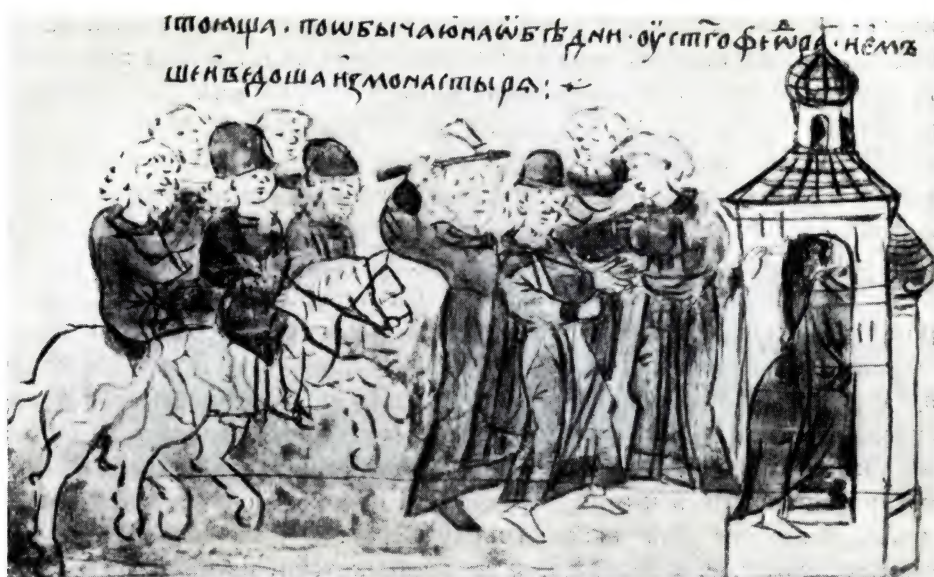 стоѧща · по ѡбычаю на ѡбѣдни · оу ст҃го феѡⷣра · и емъ
ше и ведоша из монастырѧ :